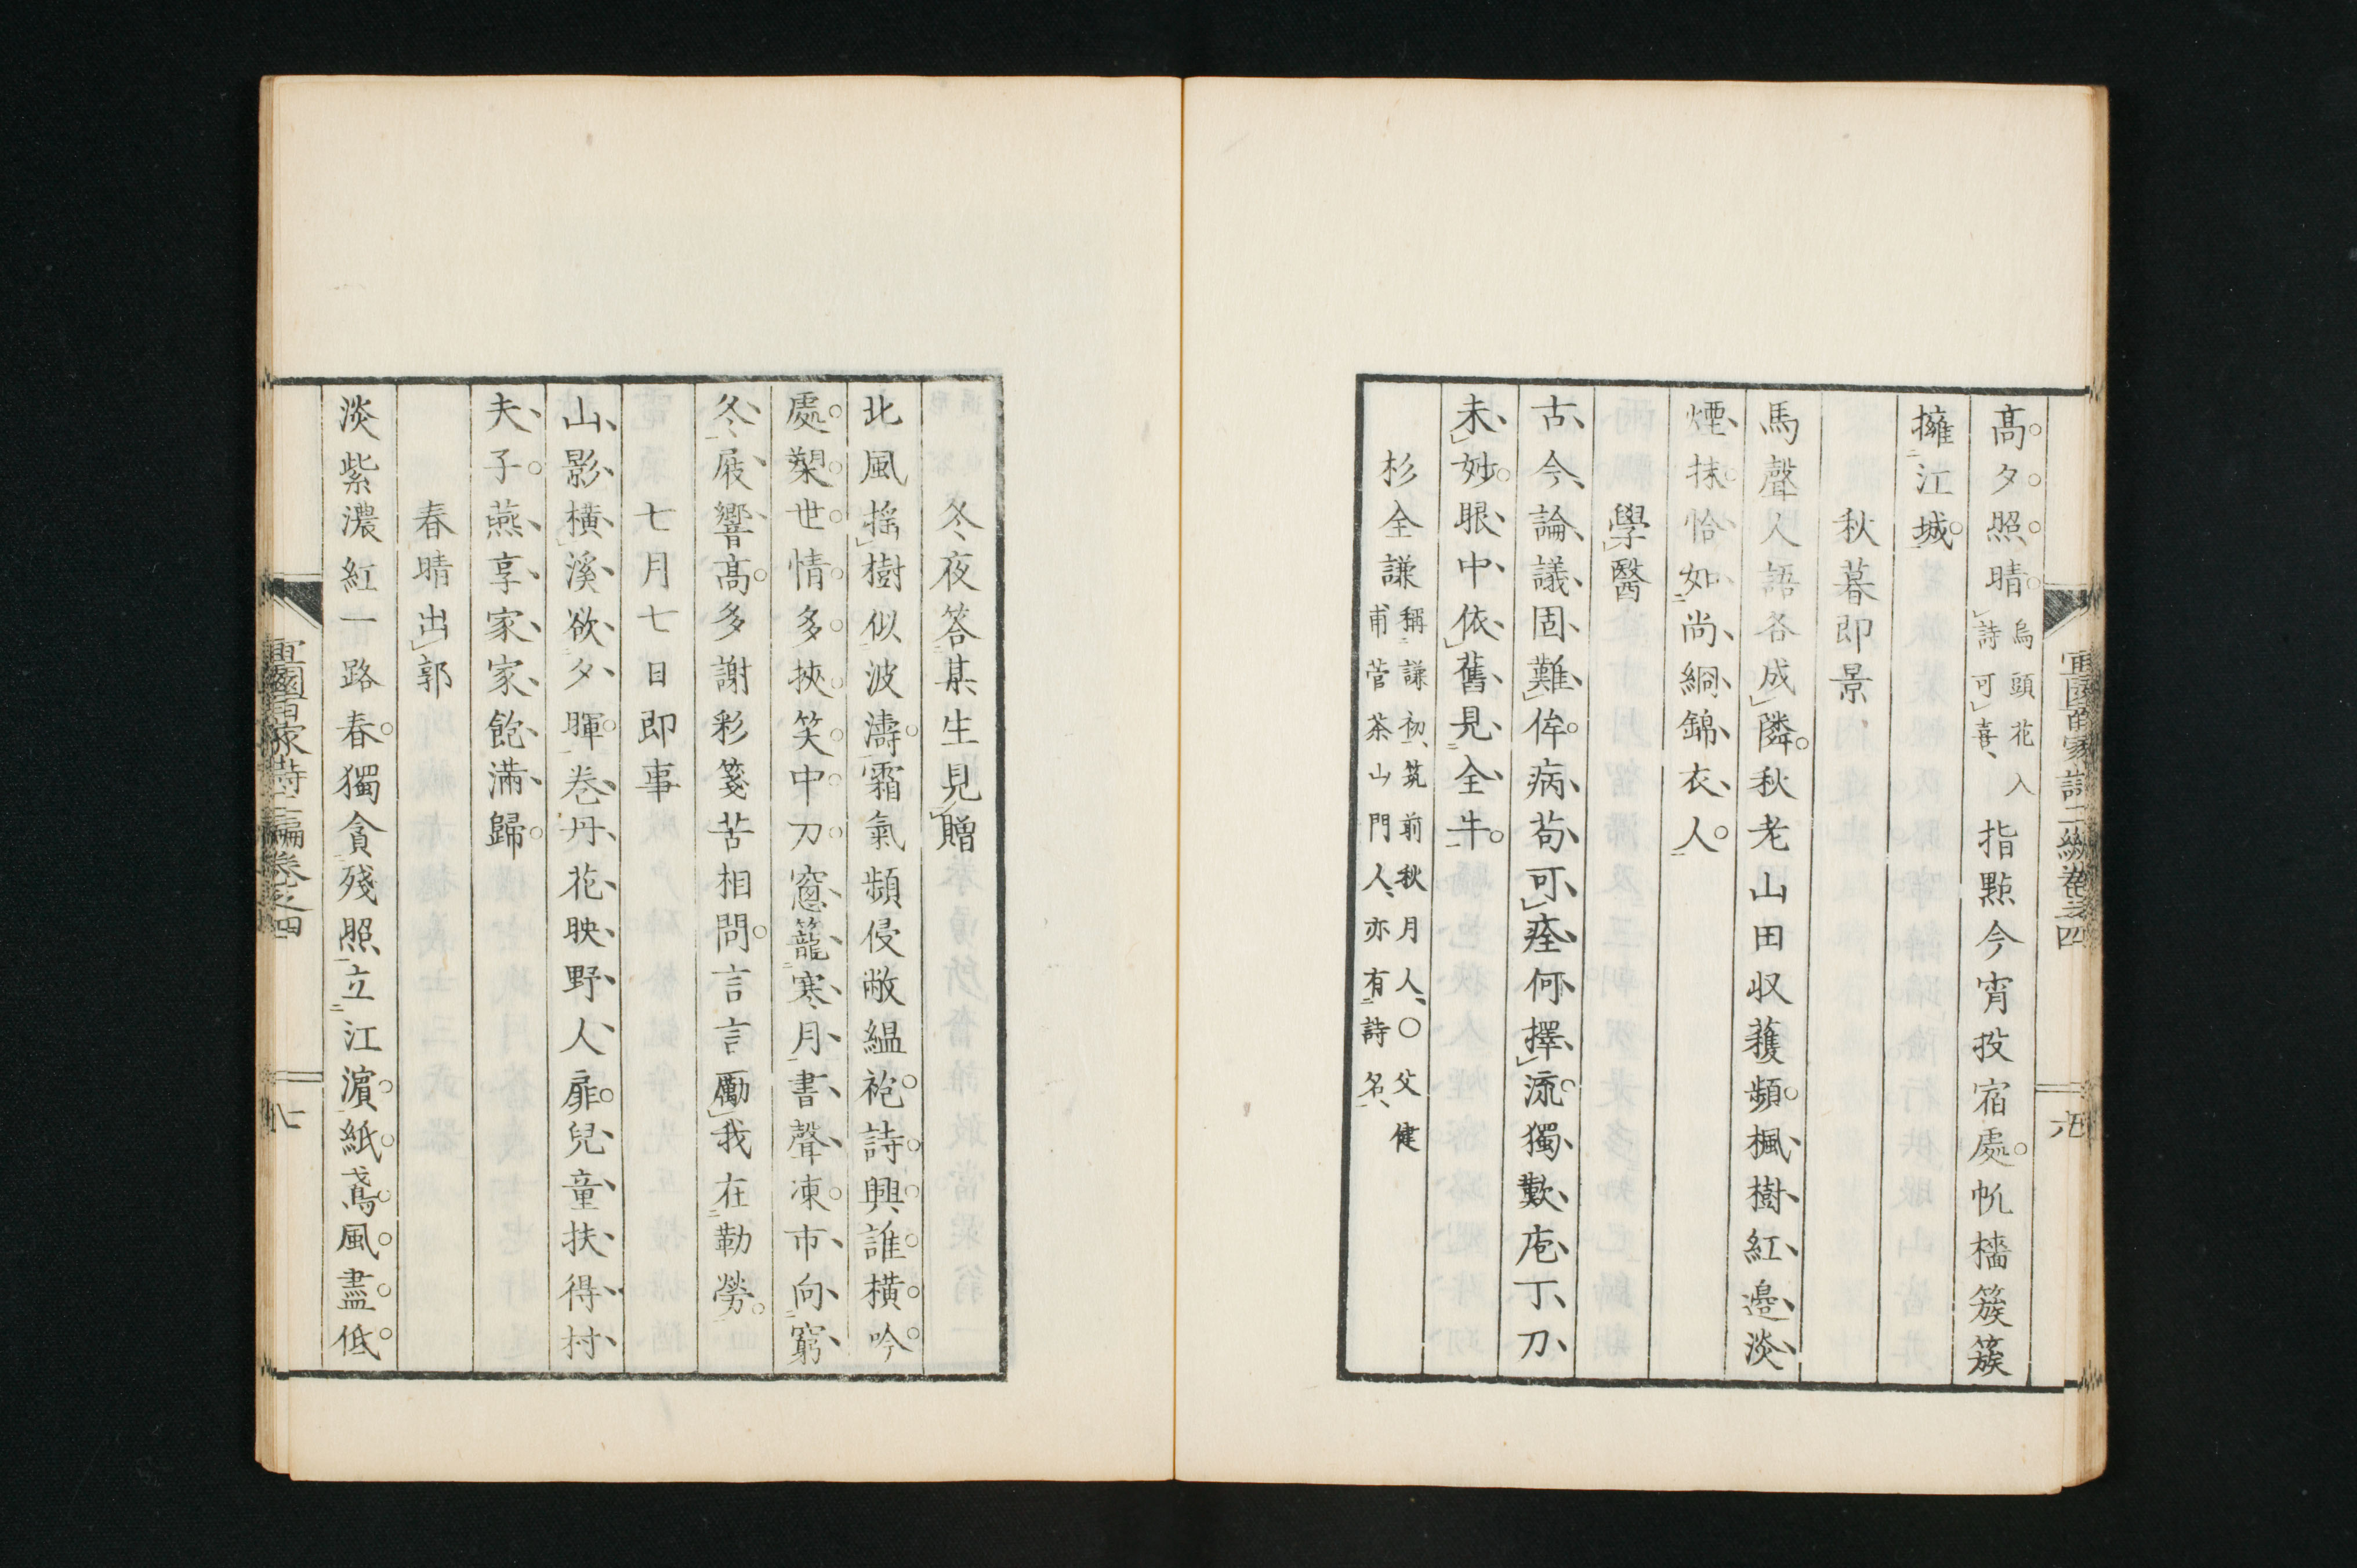 高夕照晴烏頭花入詩可喜指點今宵投宿處帆檣簇簇
擁江城
秋暮即景
馬聲人語各成隣秋老山田収蓑頻楓樹紅邊淡
煙抹恰如尚絅錦衣人
學醫
古今論議固難侔病苟可痊何擇流獨歎庖丁刀
未妙眼中依舊見全牛
杉全謙稱謙初筑前秋月人〇父健
甫菅茶山門人亦有詩名
冬夜答某生見贈
北風搖樹似波濤霜氣頻侵敝緼袍詩興誰横吟
處槊世情多挾笑中刀窓籠寒月書聲凍市向窮
冬屐響高多謝彩箋苦相問言言勵我在勤勞
七月七日即事
山影横溪欲夕暉巻丹花映野人扉兒童扶得村
夫子燕享家家飽滿歸
春晴出郭
淡紫濃紅一路春獨貪殘照立江濵紙鳶風盡低